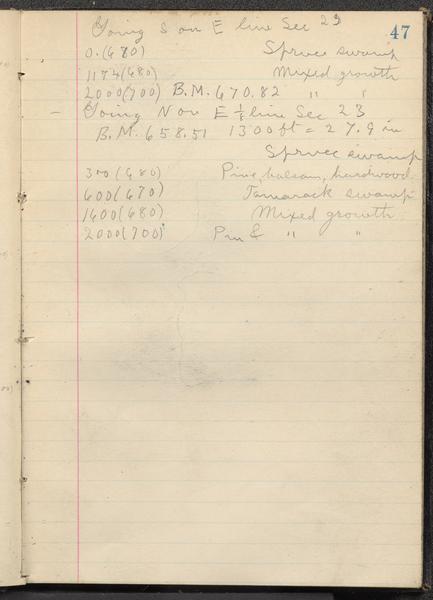 47
Going S on E line Sec 23
0.(680) Spruce swamp
1174(680) Mixed growth
2000(700) B.M. 670.82 " "
- Going N on E 1/8 line Sec 23
B.M. 658.51 1300 ft = 27.9 in
Spruce swamp
300(680) Pine, balsam, hardwood
600(670) Tamarack swamp
1600(680) Mixed growth
2000(700) & " "